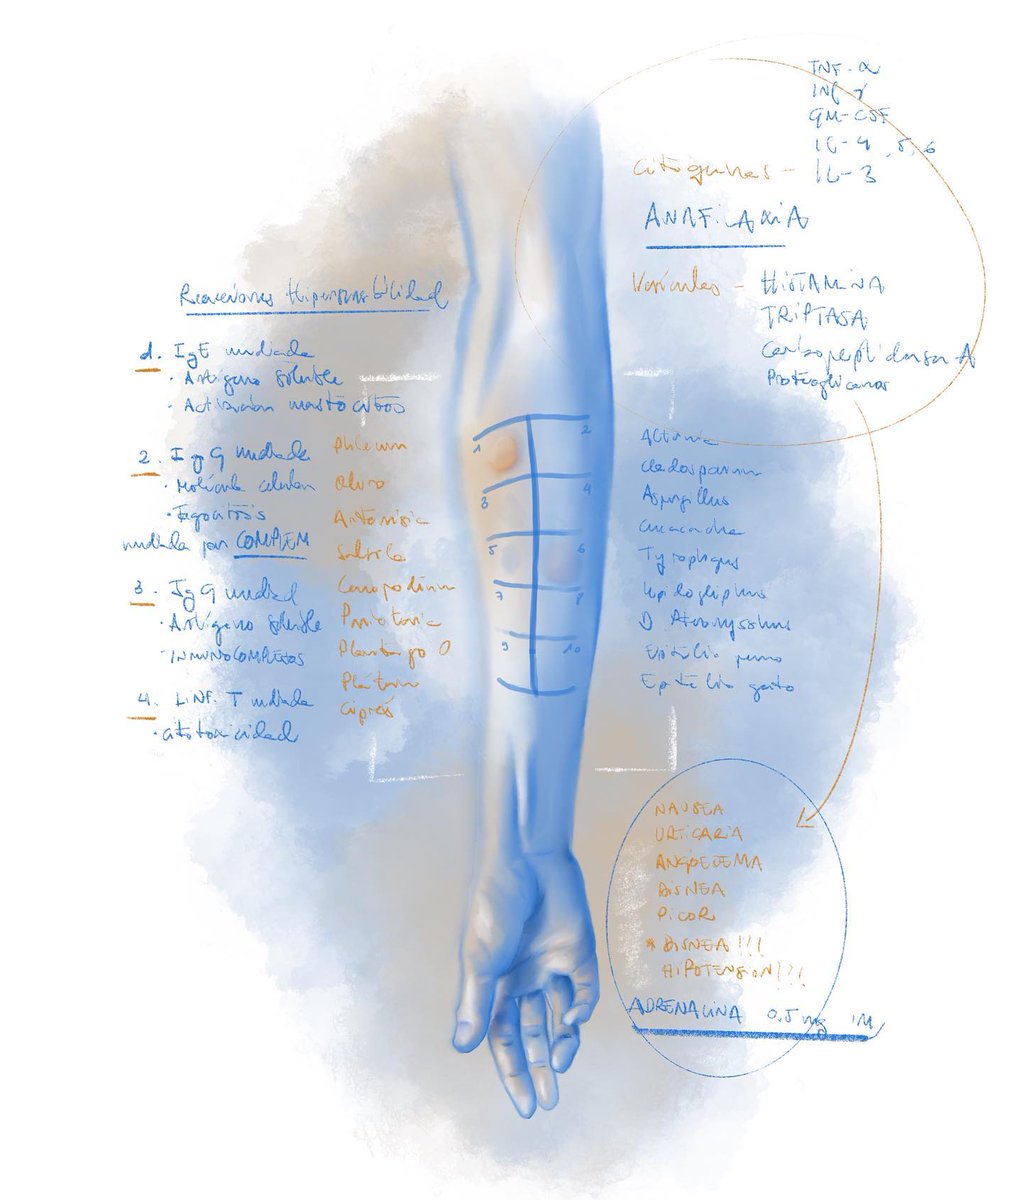 TNF-α
INF γ
GM-CSF
IL-4, 5, 6
Citoquinas - IL-3
ANAFILAXIA
Vesículas - HISTAMINA
TRIPTASA
Carboxipeptidasa A
Proteoglicanos
Reacciones Hipersensibilidad
1. IgE mediada
· Antígeno soluble
· Activación mastocitos
2. IgG mediada
· Molécula celular
· Fagocitosis
mediada por COMPLEM
3. IgG mediad
· Antígeno soluble
· INMUNOCOMPLEJOS
4. LINF. T mediada
· citotoxicidad
Phleum
Olivo
Artemisia
Salsola
Parietaria
Plantago O
Plátano
Ciprés
1
2
3
4
5
6
7
8
9
10
Alternaria
Cladosporium
Aspergillus
Cucaracha
Tyrophagus
Lepidoglyphus
D Pteronyssinus
Epitelio perro
Epitelio gato
NAUSEA
URTICARIA
ANGIOEDEMA
DISNEA
PICOR
* DISNEA!!!
HIPOTENSION!!!
ADRENALINA 0.5 mg IM